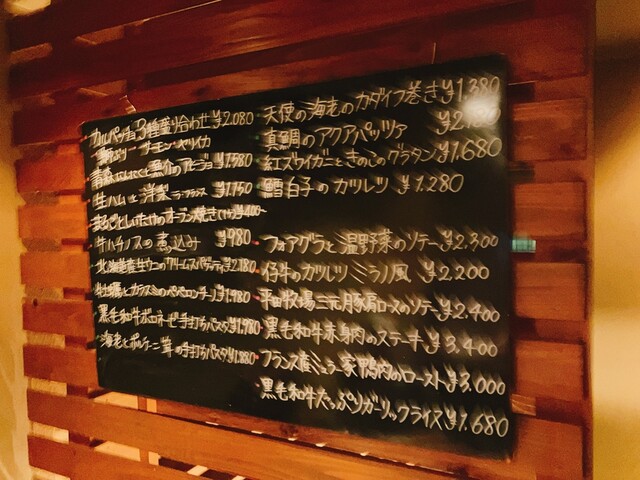 カルパッチョ3種盛り合わせ ¥2,080
サーモン ヤリイカ
青森にんにくと のアヒージョ ¥1,580
生ハムと洋梨 ラ・フランス ¥1,750
まるごとしいたけのオーブン焼き
牛ハチノスの煮込み ¥980
北海道産生ウニのクリームスパゲティ ¥2,180
牡蠣とカラスミのペペロンチーノ ¥1,980
黒毛和牛ボロネーゼ手打ちパスタ ¥1,980
海老とポルチーニ茸の手打ちパスタ ¥1,880
天使の海老のカダイフ巻き ¥1,380
真鯛のアクアパッツァ
紅ズワイガニときのこのグラタン ¥1,680
鱈白子のカツレツ ¥1,280
フォアグラと温野菜のソテー ¥2,300
仔牛のカツレツ ミラノ風 ¥2,200
平田牧場三元豚肩ロースのソテー ¥2,400
黒毛和牛赤身肉のステーキ ¥3,400
フランス産ミュラー家鴨肉のロースト ¥3,000
黒毛和牛たっぷりガーリックライス ¥1,680